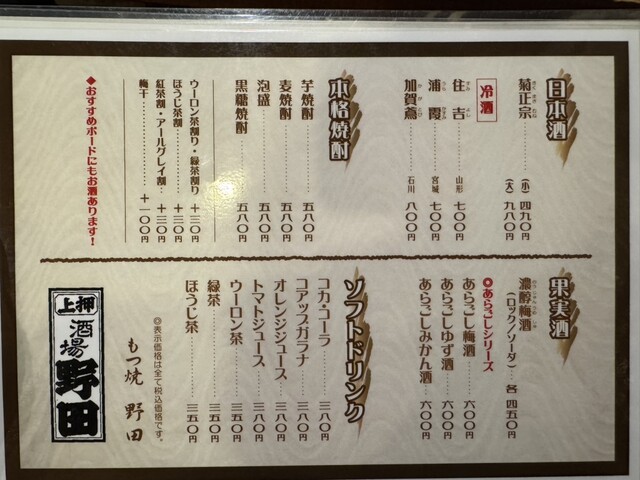 日本酒
菊正宗 (小) 四九〇円
(大) 九八〇円
冷酒
住吉 山形 七〇〇円
浦霞 宮城 七〇〇円
加賀鳶 石川 八〇〇円
本格焼酎
芋焼酎 五八〇円
麦焼酎 五八〇円
泡盛 五八〇円
黒糖焼酎 五八〇円
ウーロン茶割り・緑茶割り 十三〇円
ほうじ茶割 十三〇円
紅茶割・アールグレイ割 十三〇円
梅干 十一〇〇円
◆おすすめボードにもお酒あります!
果実酒
濃醇梅酒
(ロック/ソーダ) 各 四五〇円
◎あらごしシリーズ
あらごし梅酒 六〇〇円
あらごしゆず酒 六〇〇円
あらごしみかん酒 六〇〇円
ソフトドリンク
コカ・コーラ 三八〇円
コアップガラナ 三八〇円
オレンジジュース 三八〇円
トマトジュース 三八〇円
ウーロン茶 三五〇円
緑茶 三五〇円
ほうじ茶 三五〇円
◎表示価格は全て税込価格です。
もつ焼 野田
押上
酒場
野田